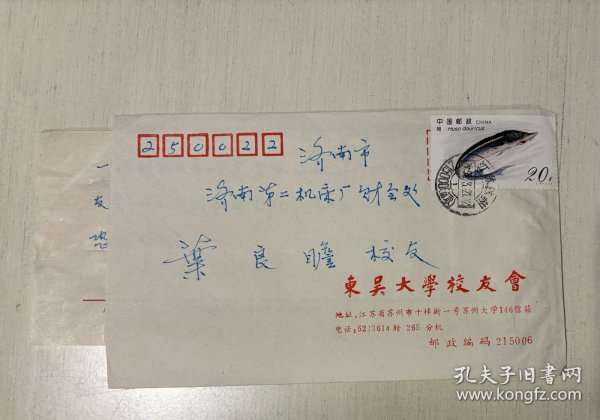 中国邮政 CHINA
鳇 Huso dauricus
20分
250022
济南市
济南第二机床厂财会处
葉良瞻 校友
東吴大學校友會
地址:江苏省苏州市十梓街一号苏州大学146信箱
电话:5223614转 265 分机
邮政编码 215006
友
恐
孔夫子旧书网
www.kongfz.com